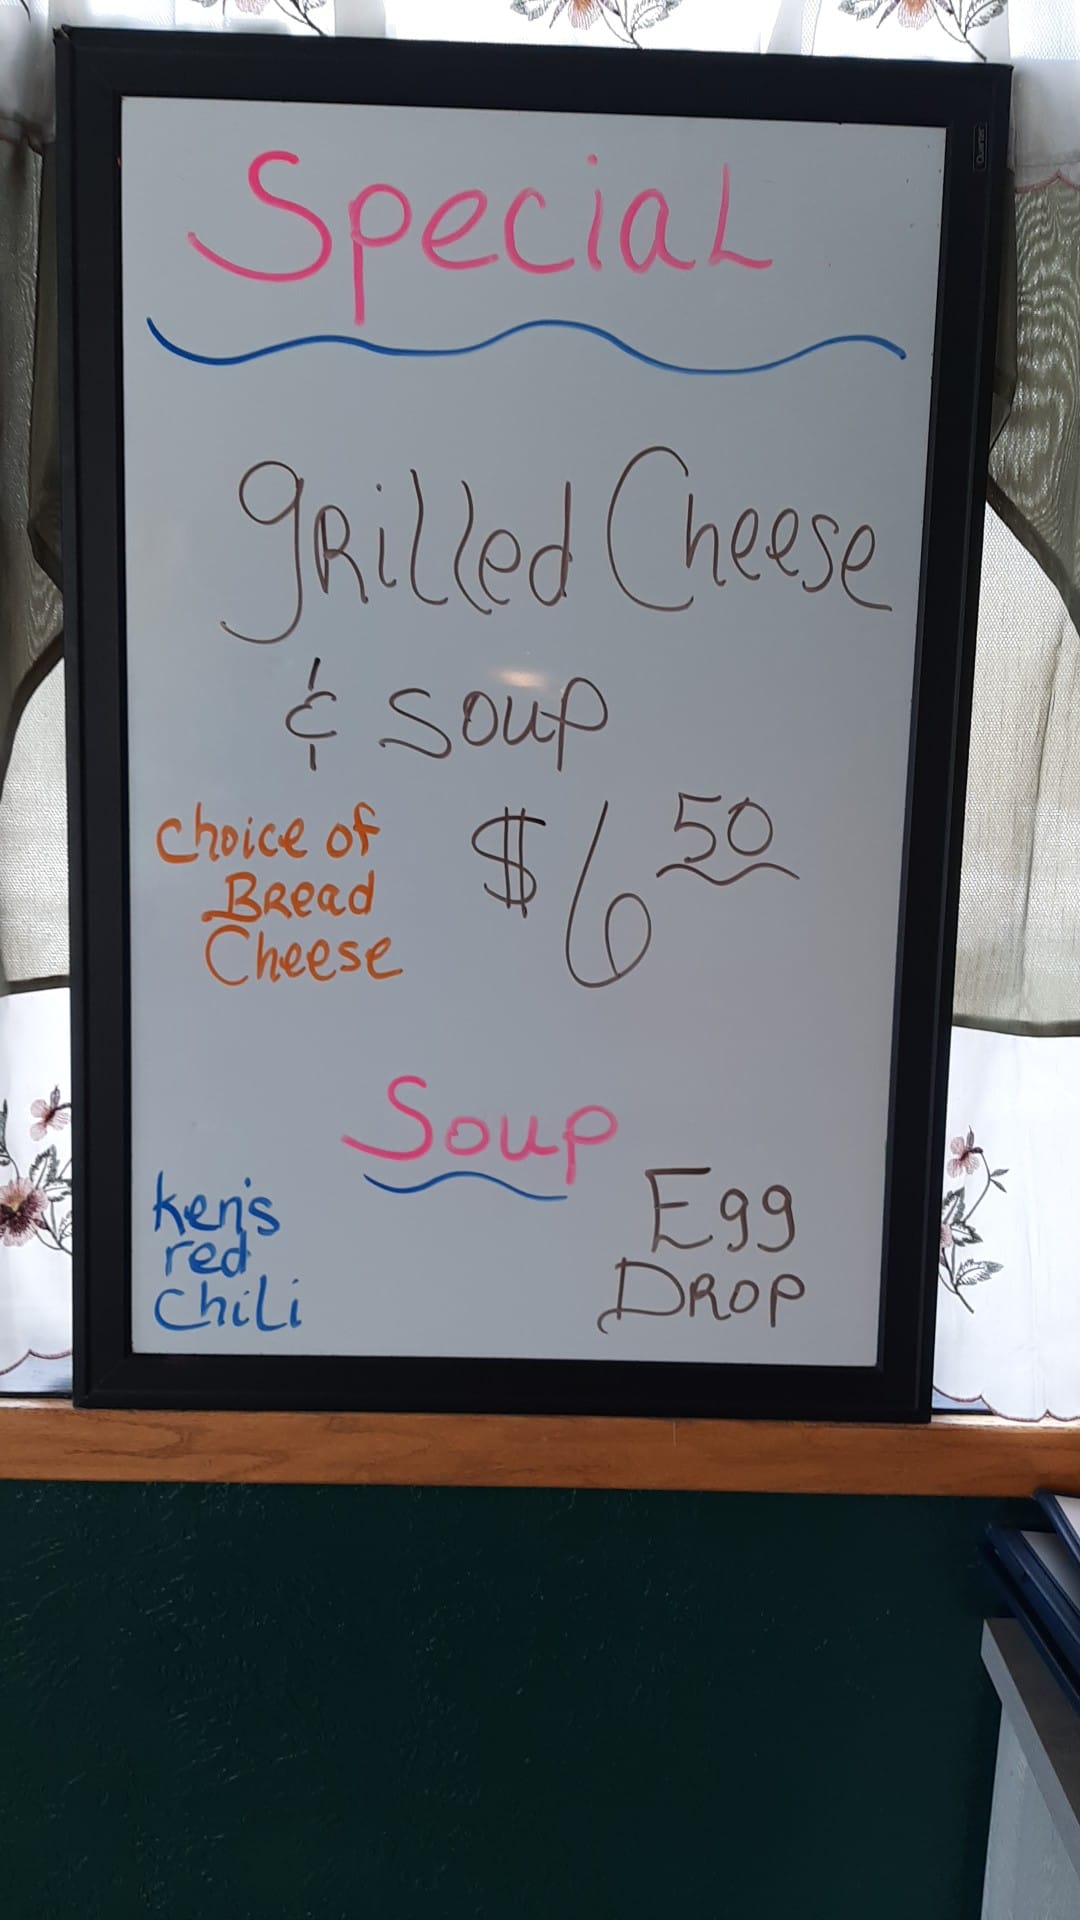 Special
grilled Cheese
& Soup
$6 50
Choice of
Bread
Cheese
Soup
ken's
red
Chili
Egg
Drop
Quartet